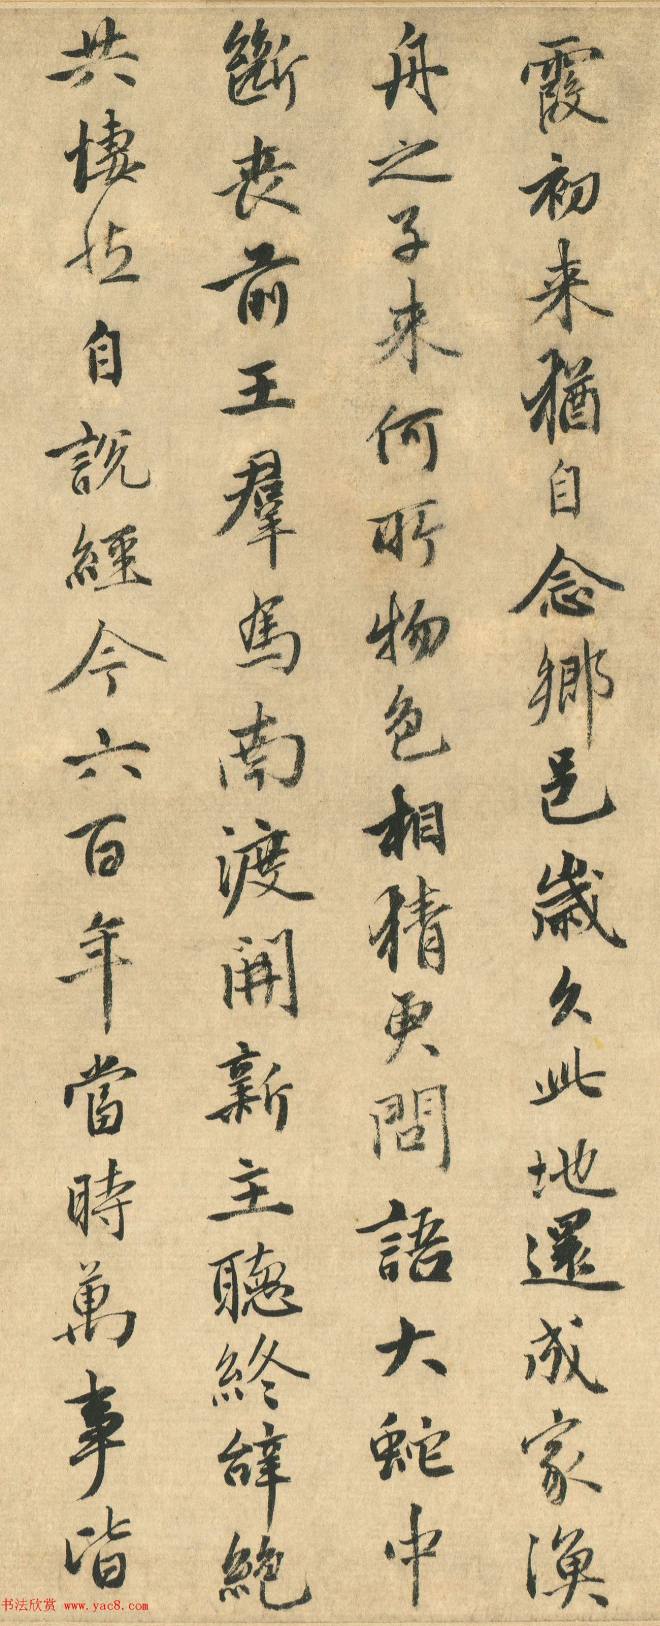 霞初来猶自念鄉邑歲久此地還成家漁
舟之子来何所物色相猜更問語大蛇中
斷喪前王羣馬南渡開新主聽終辭絶
共悽然自說經今六百年當時萬事皆
书法欣赏 www.yac8.com